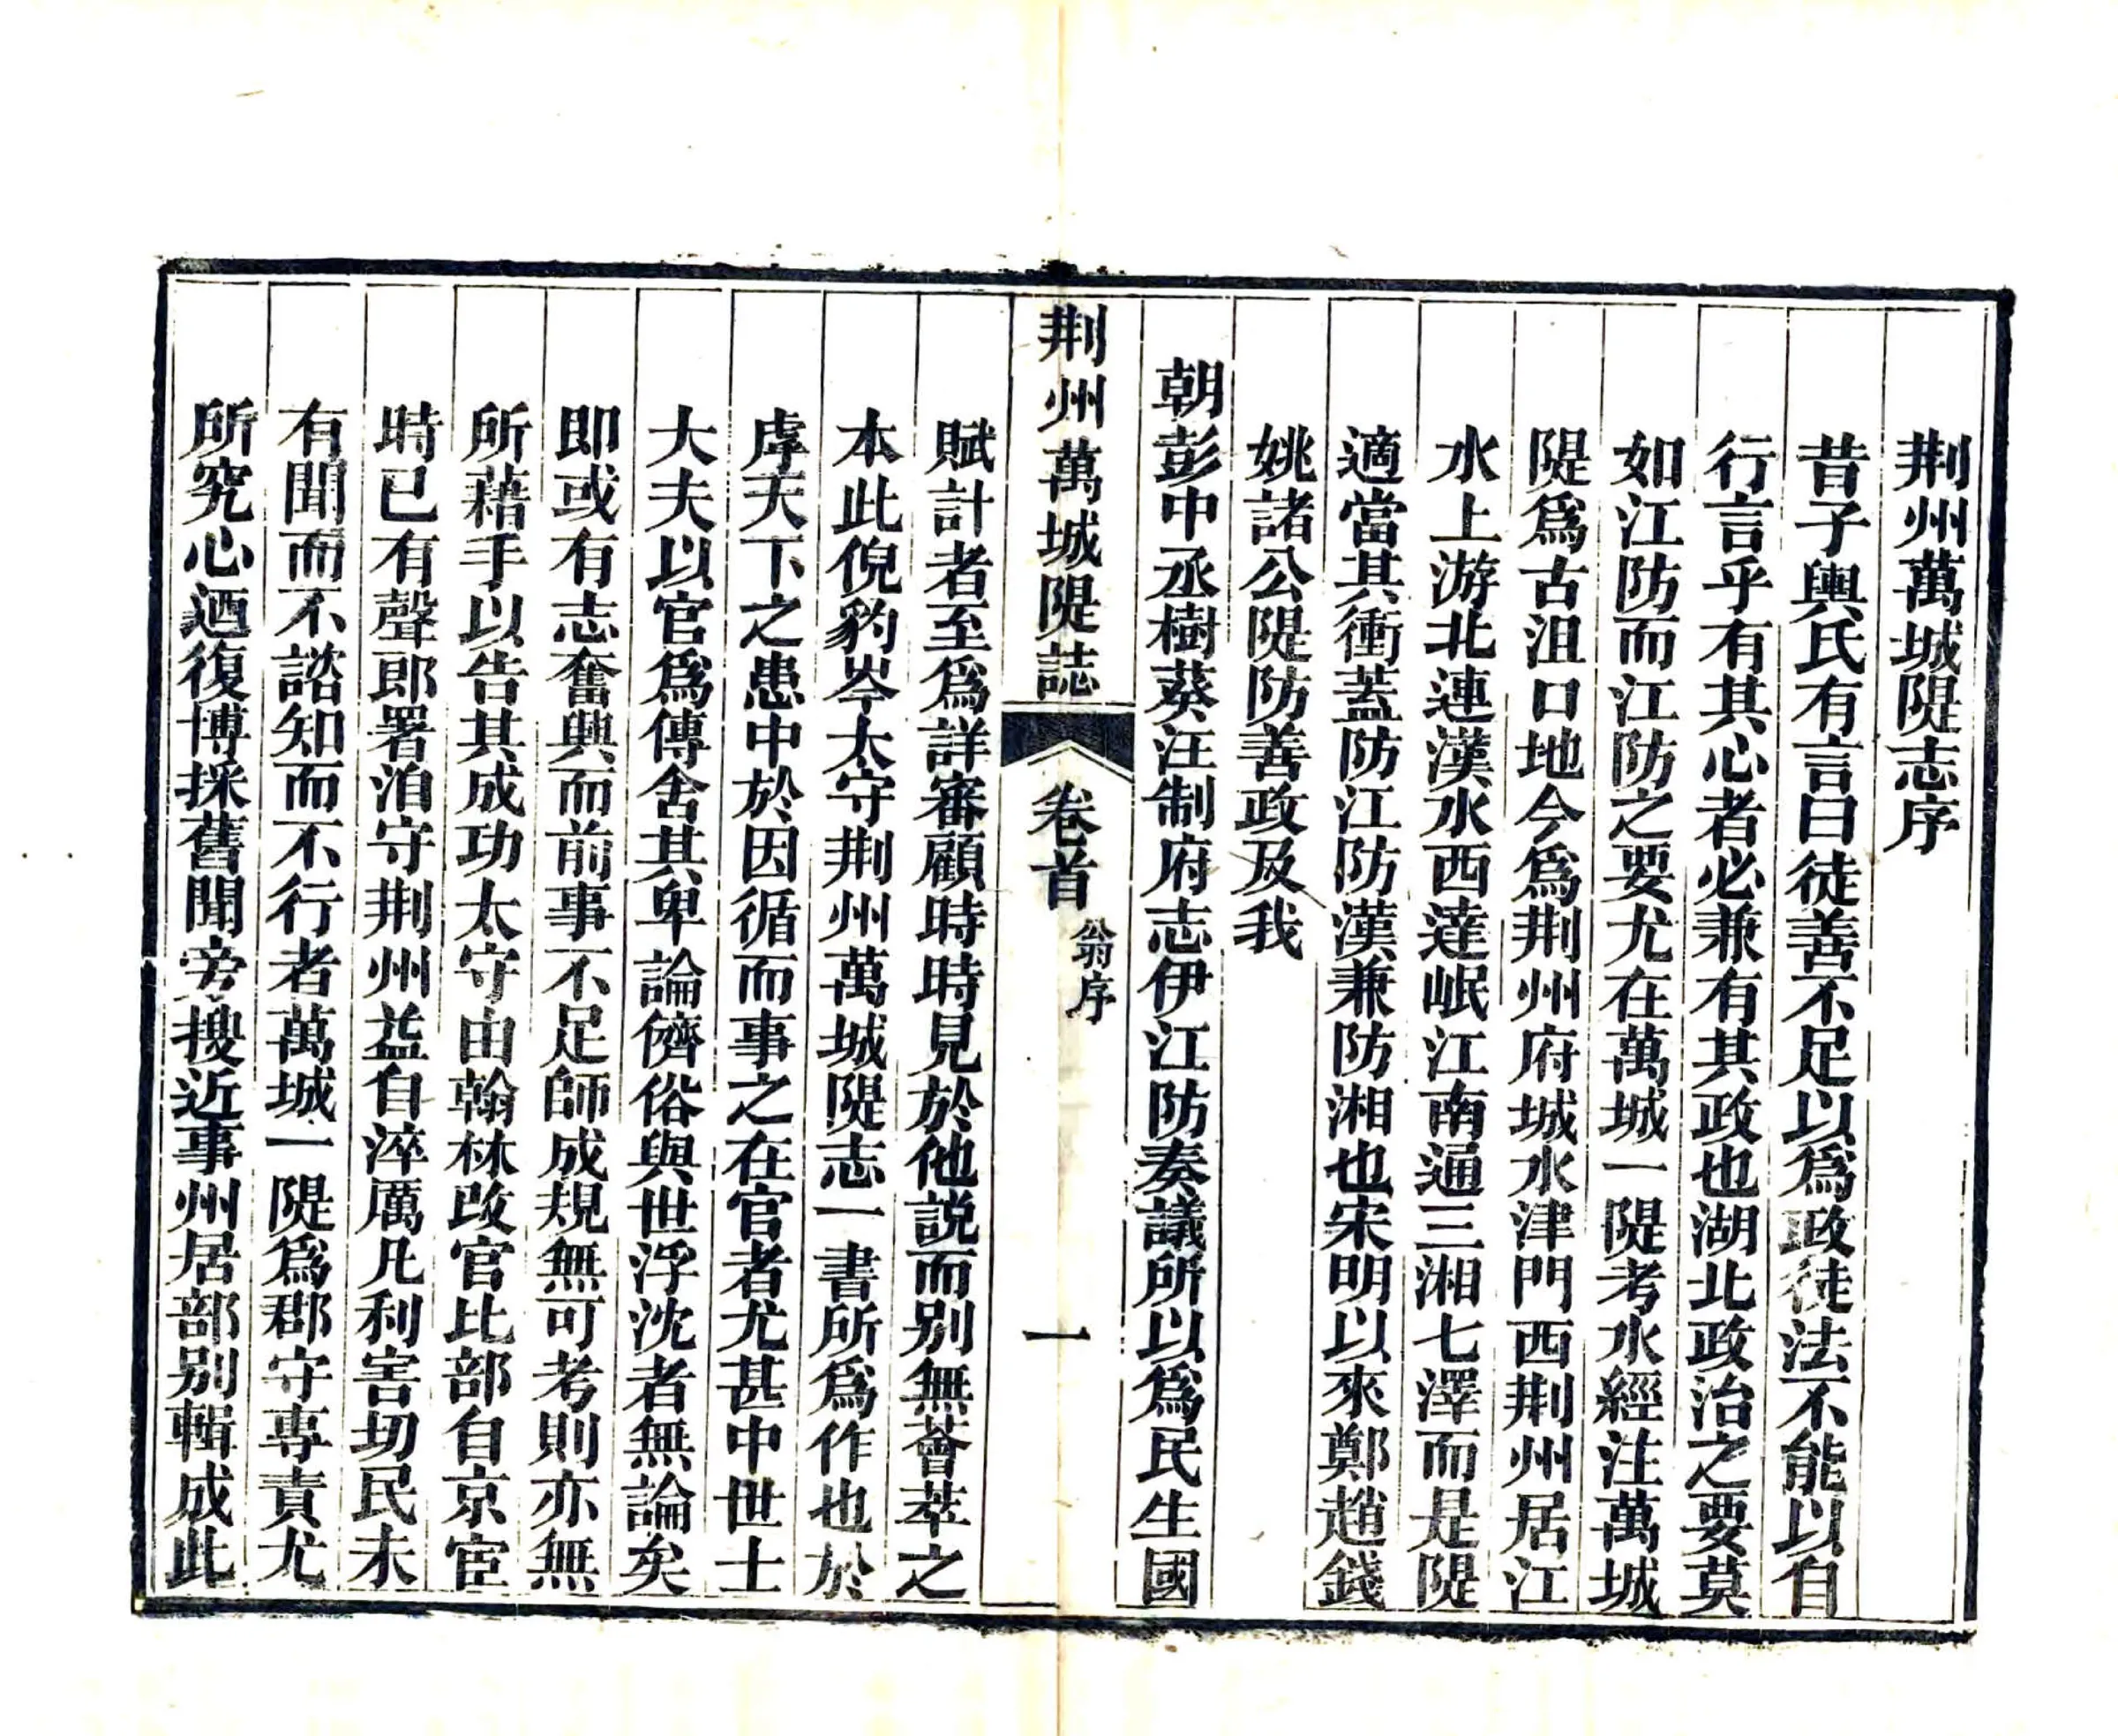 荆州萬城隄志序
昔子輿氏有言曰徒善不足以爲政徒法不能以自
行言乎有其心者必兼有其政也湖北政治之要莫
如江防而江防之要尤在萬城一隄考水經注萬城
隄爲古沮口地今爲荆州府城水津門西荆州居江
水上游北連漢水西達岷江南通三湘七澤而是隄
適當其衝蓋防江防漢兼防湘也宋明以來鄭趙錢
姚諸公隄防善政及我
朝彭中丞樹葵汪制府志伊江防奏議所以爲民生國
荆州萬城隄誌
卷首
翁序
一
賦計者至爲詳審顧時時見於他説而别無薈萃之
本此倪豹岑太守荆州萬城隄志一書所爲作也於
虖天下之患中於因循而事之在官者尤甚中世士
大夫以官爲傳舍其卑論儕俗與世浮沈者無論矣
即或有志奮興而前事不足師成規無可考則亦無
所藉手以告其成功太守由翰林改官比部自京宦
時已有聲郎署洎守荆州益自淬厲凡利害切民未
有聞而不諮知而不行者萬城一隄爲郡守專責尤
所究心迺復博採舊聞旁搜近事州居部别輯成此